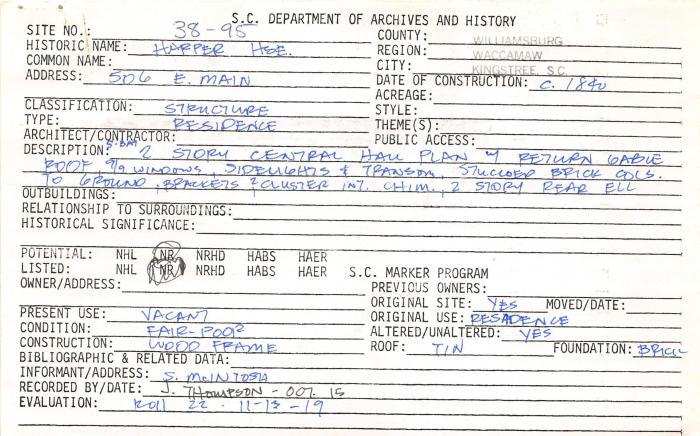 S.C. DEPARTMENT OF ARCHIVES AND HISTORY
SITE NO.: 38-95 COUNTY: WILLIAMSBURG
HISTORIC NAME: HARPER HSE. REGION: WACCAMAW
COMMON NAME: CITY: KINGSTREE, S.C.
ADDRESS: 506 E. MAIN DATE OF CONSTRUCTION: C. 1840
ACREAGE:
CLASSIFICATION: STRUCTURE STYLE:
TYPE: RESIDENCE THEME(S):
ARCHITECT/CONTRACTOR: PUBLIC ACCESS:
DESCRIPTION: 5-BAY 2 STORY CENTRAL HALL PLAN W/ RETURN GABLE
ROOF 9/9 WINDOWS, SIDELIGHTS & TRANSOM, STUCCOED BRICK COLS.
TO GROUND, BRACKETS, 2 CLUSTER INT. CHIM., 2 STORY REAR ELL
OUTBUILDINGS:
RELATIONSHIP TO SURROUNDINGS:
HISTORICAL SIGNIFICANCE:
POTENTIAL: NHL NR NRHD HABS HAER
LISTED: NHL NR NRHD HABS HAER S.C. MARKER PROGRAM
OWNER/ADDRESS: PREVIOUS OWNERS:
ORIGINAL SITE: YES MOVED/DATE:
PRESENT USE: VACANT ORIGINAL USE: RESADENCE
CONDITION: FAIR-POOR ALTERED/UNALTERED: YES
CONSTRUCTION: WOOD FRAME ROOF: TIN FOUNDATION: BRICK
BIBLIOGRAPHIC & RELATED DATA:
INFORMANT/ADDRESS: S. McINTOSH
RECORDED BY/DATE: J. THOMPSON - OCT. 15
EVALUATION: ROLL 22 - 11-13 - 19